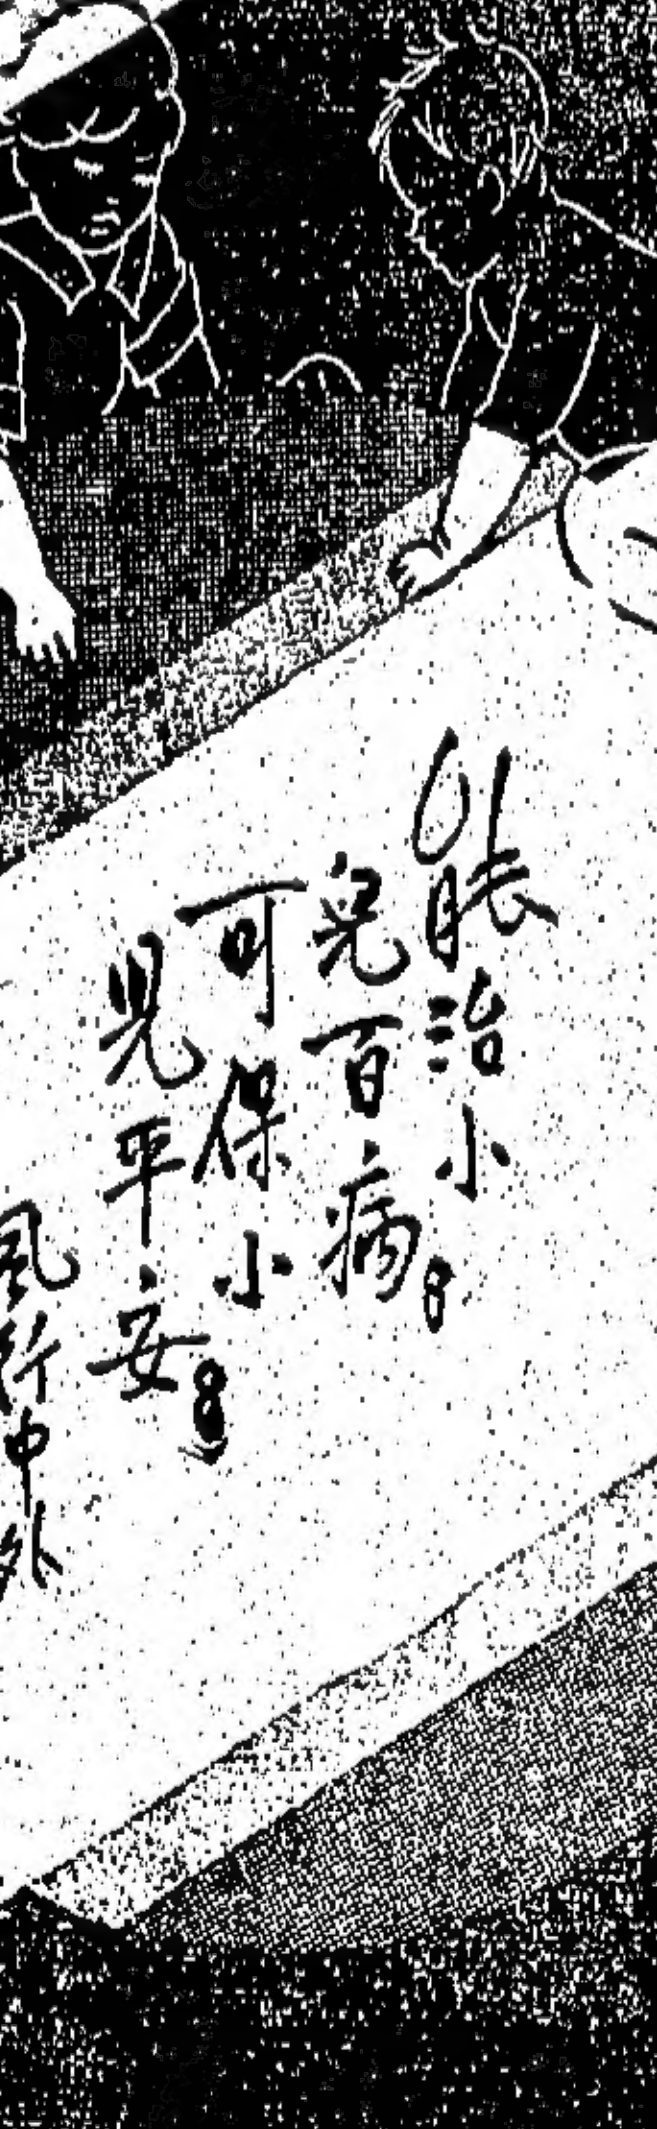 能治小
兒百病
可保小
兒平安
風行中外